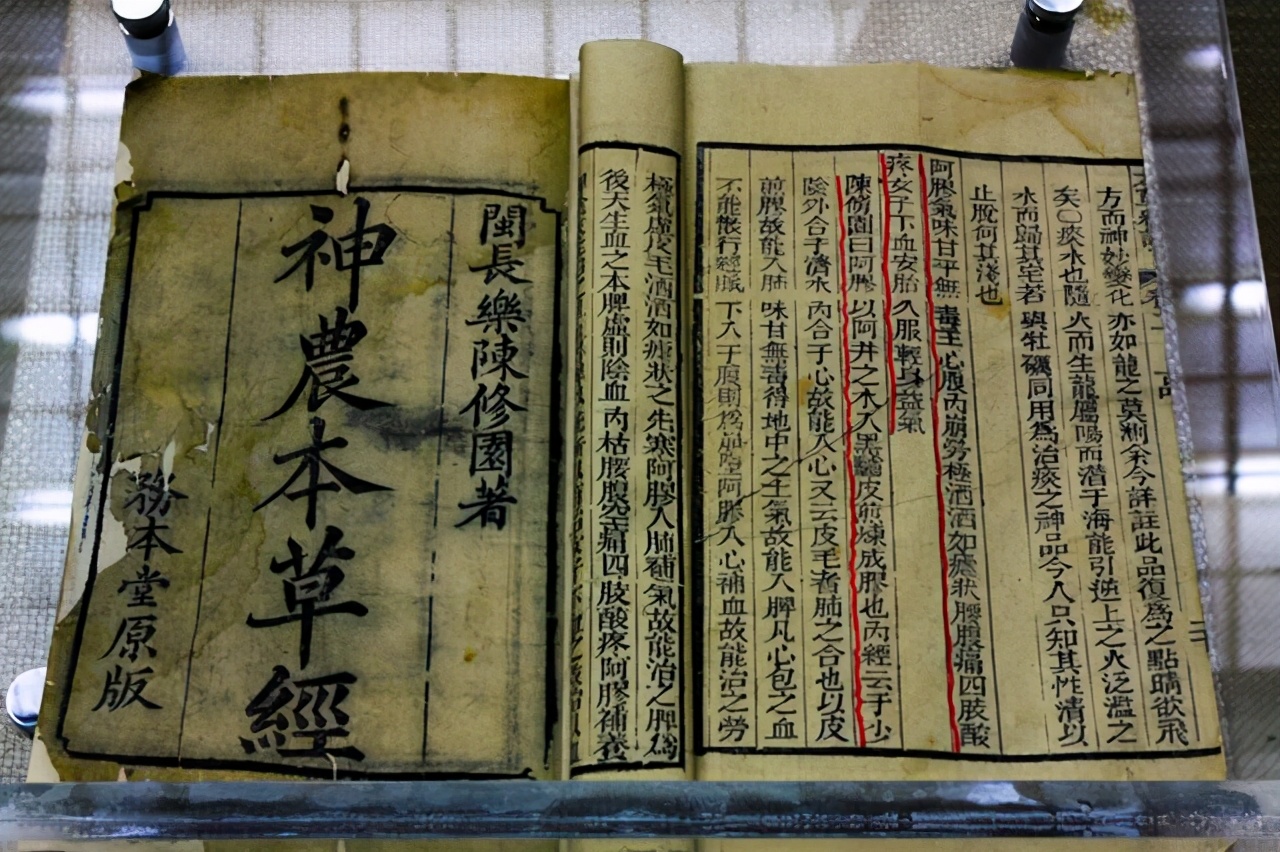 方而神妙變化亦如龍之莫測余今詳註此品復爲之點睛欲飛
矣○痰水也隨火而生龍屬陽而潛于海能引逆上之火泛濫之
水而歸其宅者與牡礪同用爲治痰之神品今人只知其性濇以
止脫何其淺也
阿膠氣味甘平無毒主心腹內崩勞極洒洒如瘧狀腰腹痛四肢酸
疼女子下血安胎久服輕身益氣
陳修園曰阿膠以阿井之水入黑驢皮煎煉成膠也內經云手少
陰外合于濟水內合于心故能入心又云皮毛者肺之合也以皮
前膠故能入肺味甘無毒得地中之土氣故能入脾凡心包之血
不能散行經脈下入于腹則爲崩墮阿膠入心補血故能治之勞
極氣虛皮毛洒洒如瘧狀之先寒阿膠入肺補氣故能治之脾爲
後天生血之本脾虛則陰血內枯腰腹空痛四肢酸疼阿膠補養
閩長樂陳修園著
神農本草經
務本堂原版